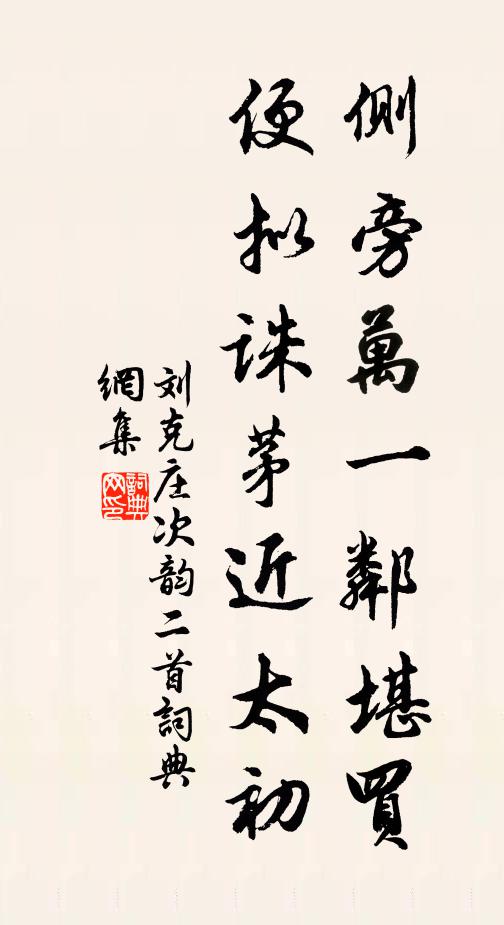 側旁萬一鄰堪買
便拟誅茅近太初
刘克庄次韵二首詞典
網集
詞典
网印